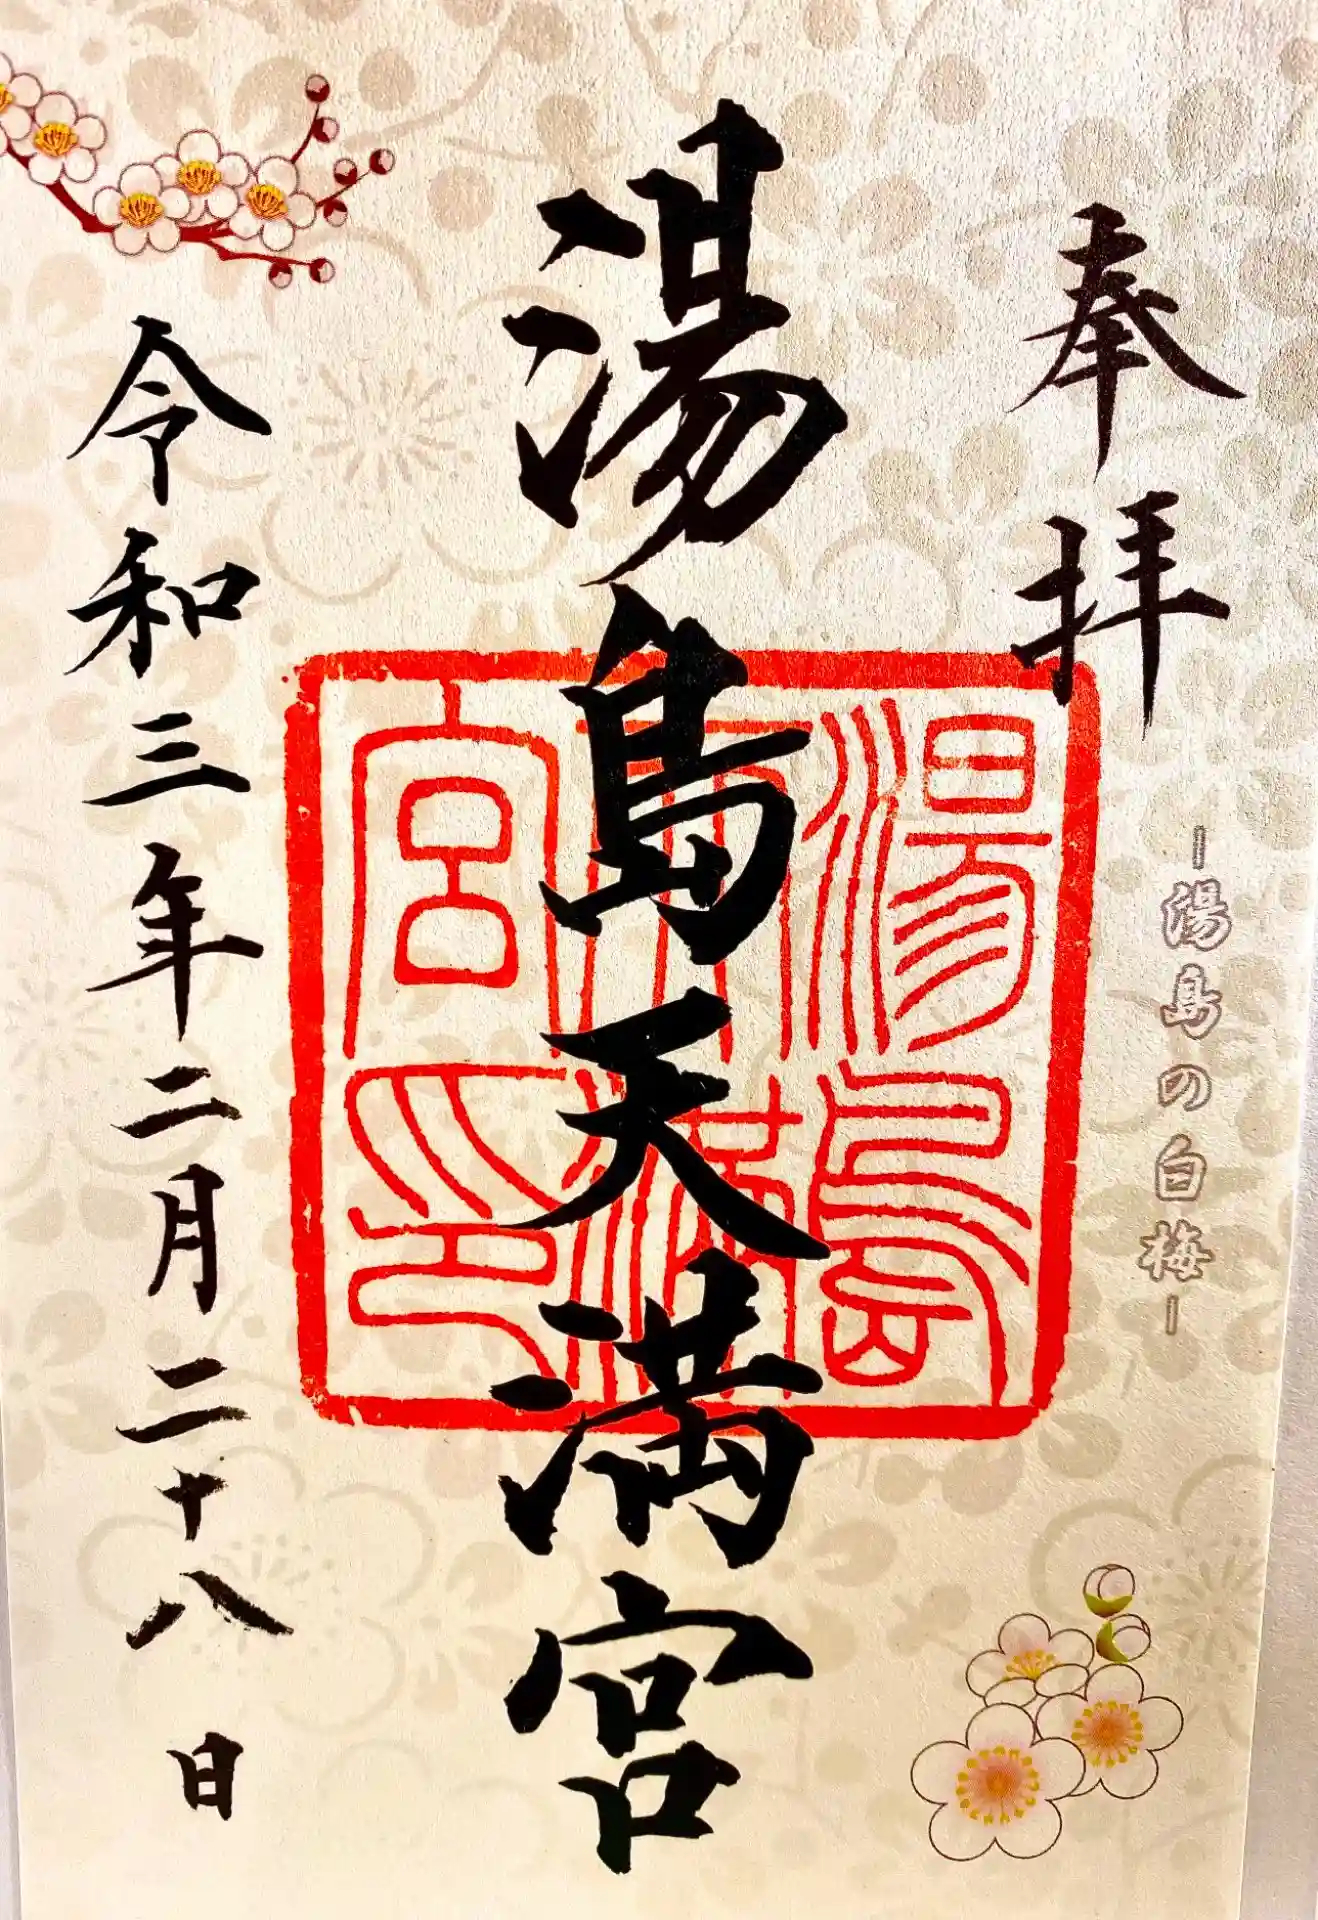 奉拝
-湯島の白梅-
湯島天満宮
湯島
天満
宮印
令和三年二月二十八日